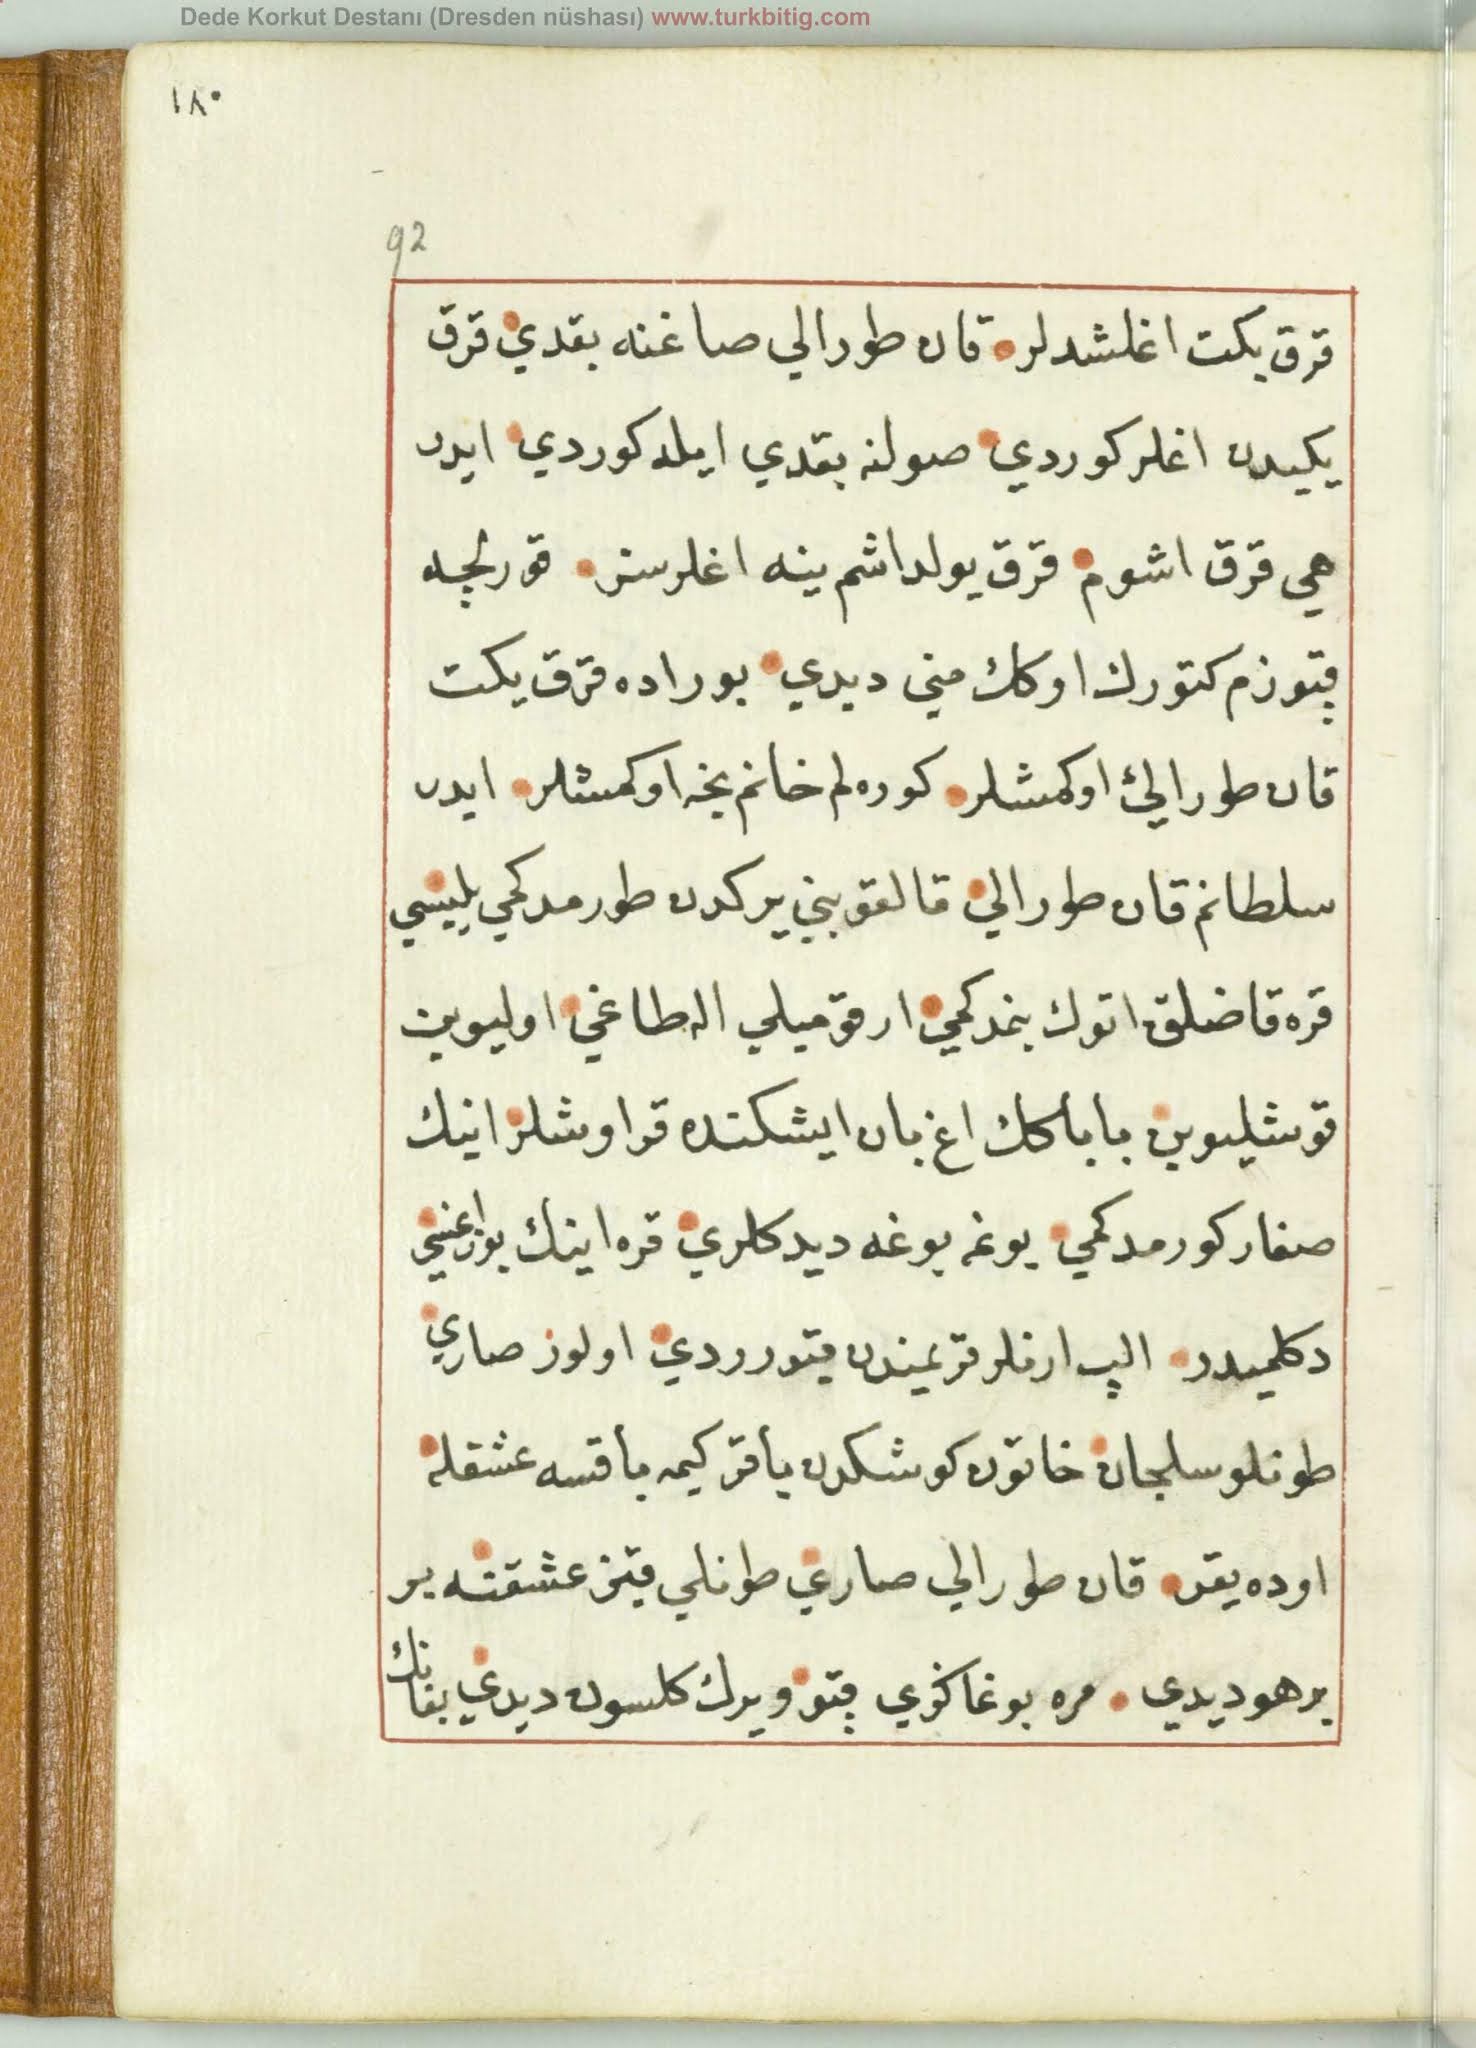 Dede Korkut Destanı (Dresden nüshası) www.turkbitig.com
١٨٠
92
قرق یکت اغلشدلر قان طورالي صاغنه بقدي قرق
یکیدن اغلر کوردي صولنه بقدي ایله کوردي ایدر
هي قرق اشوم قرق یولداشم ینه اغلرسز قورلچه
قپتوزم کتورك اوکك مني دیدي بوراده قرق یکت
قان طورالیئ اوکمشلر کوره لم خانم نجه اوکمشلر ایدر
سلطانم قان طورالي قالقوبني یرکدن طورمدکمي یلیسي
قره قاضلق اتوك بنمدکمي ارقومیلي اله طاغي اولیوبن
قوشلیوبن باباكك اغ بان ایشکنده قراوشلر اینك
صغار کورمدکمي بوغه بوغه دیدکلري قره اینك بوزاغیسي
دکلمیدر الپ ارنلر قریمندن قیتورردي اولوز صاري
طونلو سلجان خاتون کوشکدن باقر کیمه باقسه عشقله
اوده یقر قان طورالي صاري طونلي قیز عشقنه بر
برهو دیدي مره بوغاكزي قپتوز ویرك کلسون دیدي بغانك